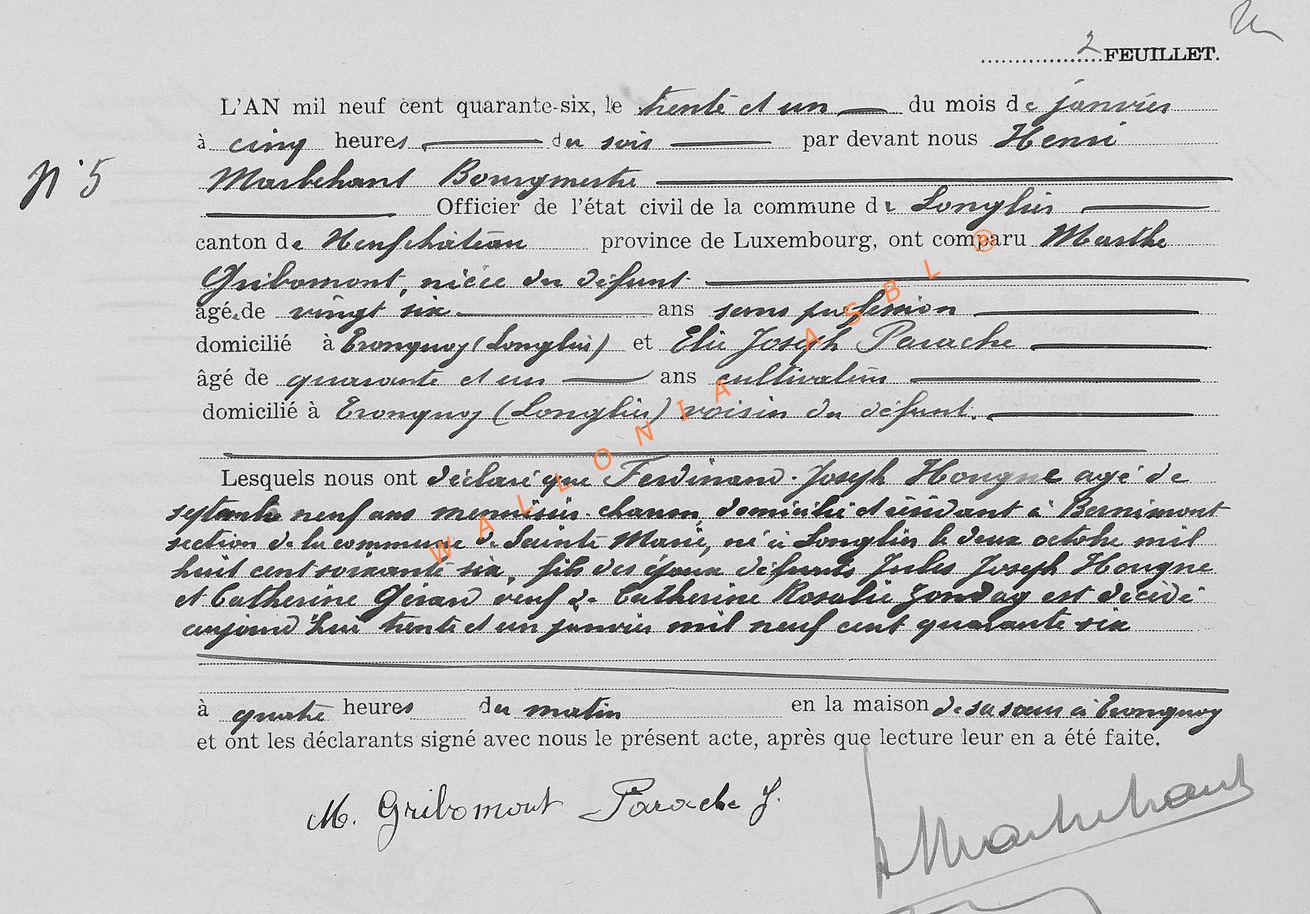 2 FEUILLET.
N° 5
L'AN mil neuf cent quarante-six, le trente et un du mois de janvier
à cinq heures du soir par devant nous Henri
Marbehant Bourgmestre
Officier de l'état civil de la commune de Longlier
canton de Neufchâteau province de Luxembourg, ont comparu Marthe
Gribomont, nièce du défunt
âgé de vingt six ans sans profession
domicilié à Tronquoy (Longlier) et Elie Joseph Parache
âgé de quarante et un ans cultivateur
domicilié à Tronquoy (Longlier) voisin du défunt.
Lesquels nous ont déclaré que Ferdinand Joseph Hougne agé de
septante neuf ans menuisier-charron, domicilié et résidant à Bernimont
section de la commune de Sainte Marie, né à Longlier le deux octobre mil
huit cent soixante six, fils des époux défunts Jules Joseph Hougne
et Catherine Gérard veuf de Catherine Rosalie Jondag est décédé
aujourd'hui trente et un janvier mil neuf cent quarante six
à quatre heures du matin en la maison de sa sœur à Tronquoy
et ont les déclarants signé avec nous le présent acte, après que lecture leur en a été faite.
M. Gribomont Parache J.
H Marbehant
WALLONIA ASBL ®